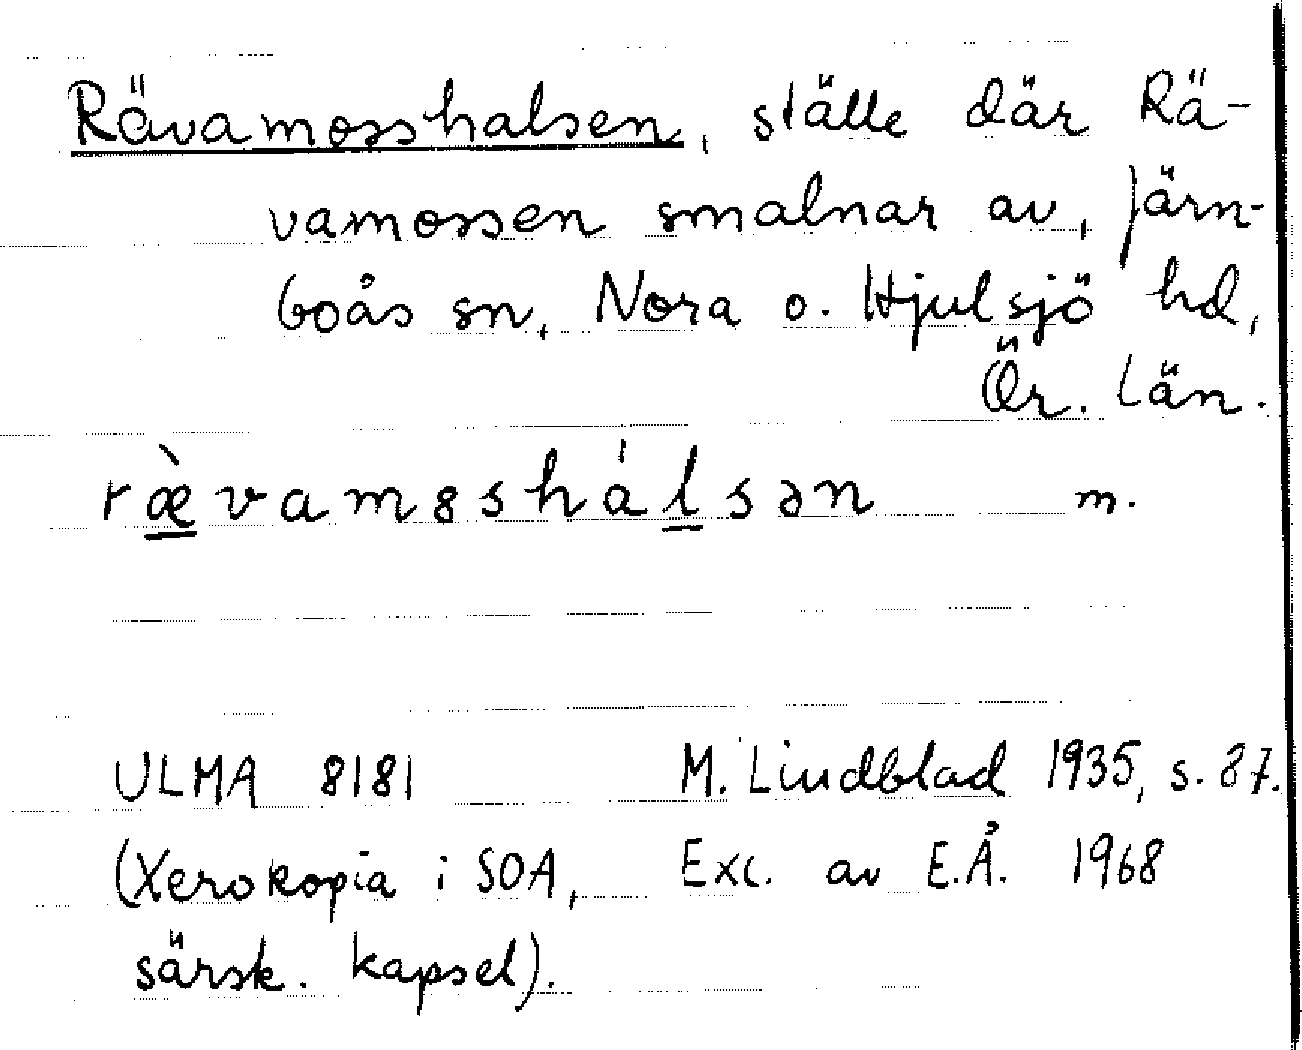 Rävamosshalsen, ställe där Rä-
vamossen smalnar av, Järn-
boås sn, Nora o. Hjulsjö hd,
Ör. län.
ræ̀vamȣshálsən m.
ULMA 8181 M. Lindblad 1935, s. 87.
(Xerokopia i SOA, Exc. av E.Å. 1968
särsk. kapsel).